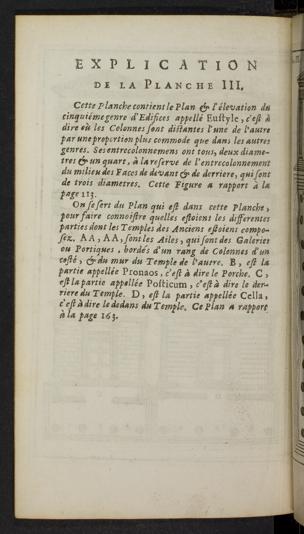 EXPLICATION
DE LA PLANCHE III.
Cette Planche contient le Plan & l'élevation du
cinquiéme genre d'Edifices appellé Eustyle, c'est à
dire où les Colonnes sont distantes l'une de l'autre
par une proportion plus commode que dans les autres
genres. Ses entrecolonnemens ont tous, deux diame-
tres & un quart, à la reserve de l'entrecolonnement
du milieu des Faces de devant & de derriere, qui est
de trois diametres. Cette Figure a rapport à la
page 113.
On se sert du Plan qui est dans cette Planche,
pour faire connoistre quelles estoient les differentes
parties dont les Temples des Anciens estoient compo-
sez. AA, AA, sont les Ailes, qui sont des Galeries
ou Portiques, bordés d'un rang de Colonnes d'un
costé, & du mur du Temple de l'autre. B, est la
partie appellée Pronaos, c'est à dire le Porche. C,
est la partie appellée Posticum, c'est à dire le der-
riere du Temple. D, est la partie appellée Cella,
c'est à dire le dedans du Temple. Ce Plan a rapport
à la page 163.